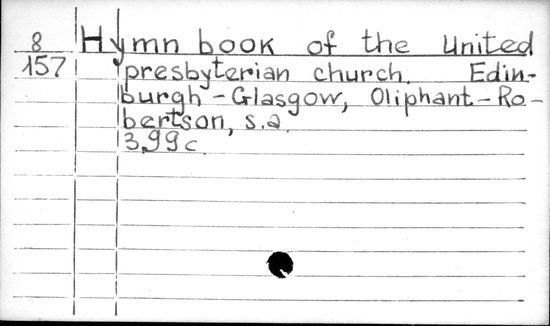 8 Hymn book of the United
157 presbyterian church. Edin-
burgh - Glasgow, Oliphant - Ro-
bertson, s.a.
3,99 c.